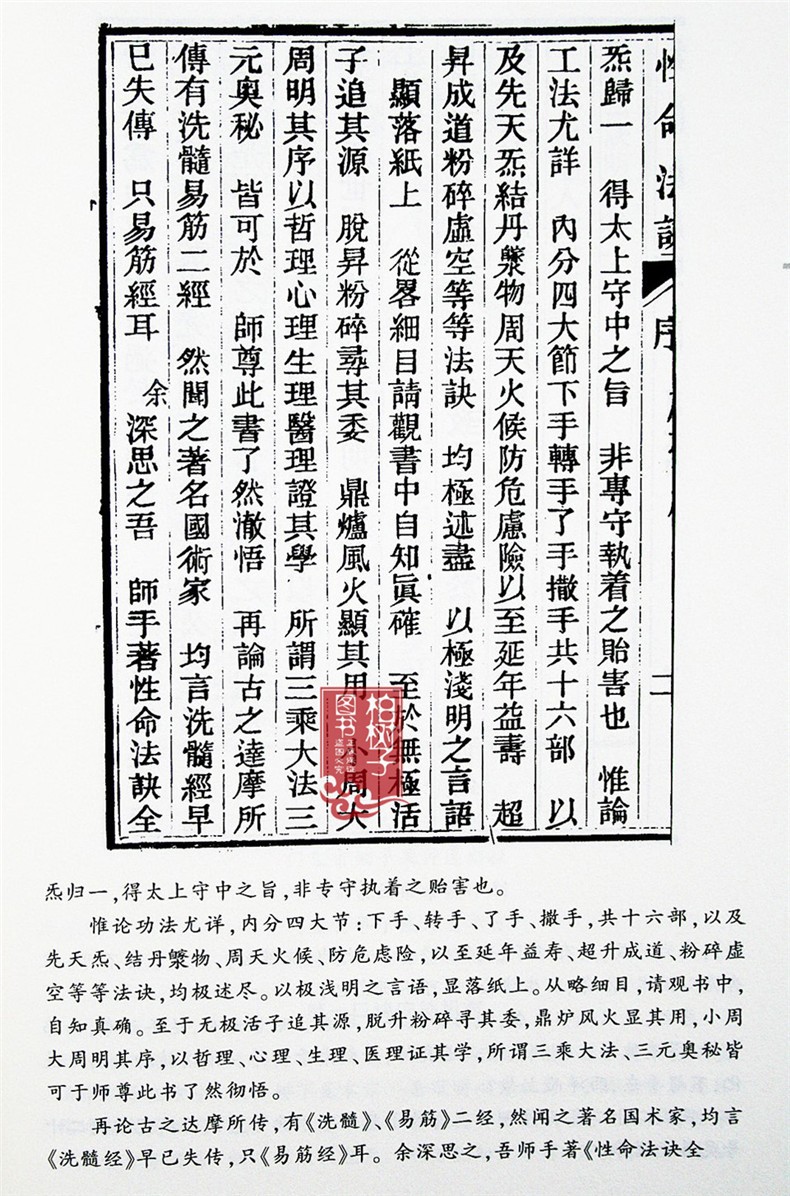 性命法訣 序 二
炁歸一 得太上守中之旨 非專守執着之貽害也 惟論
工法尤詳 內分四大節下手轉手了手撒手共十六部 以
及先天炁結丹檗物周天火候防危慮險以至延年益壽 超
昇成道粉碎虛空等等法訣 均極述盡 以極淺明之言語
顯落紙上 從畧細目請觀書中自知眞確 至於無極活
子追其源 脫昇粉碎尋其委 鼎爐風火顯其用 小周大
周明其序以哲理心理生理醫理證其學 所謂三乘大法三
元奧秘 皆可於 師尊此書了然澈悟 再論古之達摩所
傳有洗髓易筋二經 然聞之著名國術家 均言洗髓經早
已失傳 只易筋經耳 余深思之吾 師手著性命法訣全
柏树子
图书
炁归一,得太上守中之旨,非专守执着之贻害也。
惟论功法尤详,内分四大节:下手、转手、了手、撒手,共十六部,以及
先天炁、结丹檗物、周天火候、防危虑险,以至延年益寿、超升成道、粉碎虚
空等等法诀,均极述尽。以极浅明之言语,显落纸上。从略细目,请观书中,
自知真确。至于无极活子追其源,脱升粉碎寻其委,鼎炉风火显其用,小周
大周明其序,以哲理、心理、生理、医理证其学,所谓三乘大法、三元奥秘皆
可于师尊此书了然彻悟。
再论古之达摩所传,有《洗髓》、《易筋》二经,然闻之著名国术家,均言
《洗髓经》早已失传,只《易筋经》耳。余深思之,吾师手著《性命法诀全